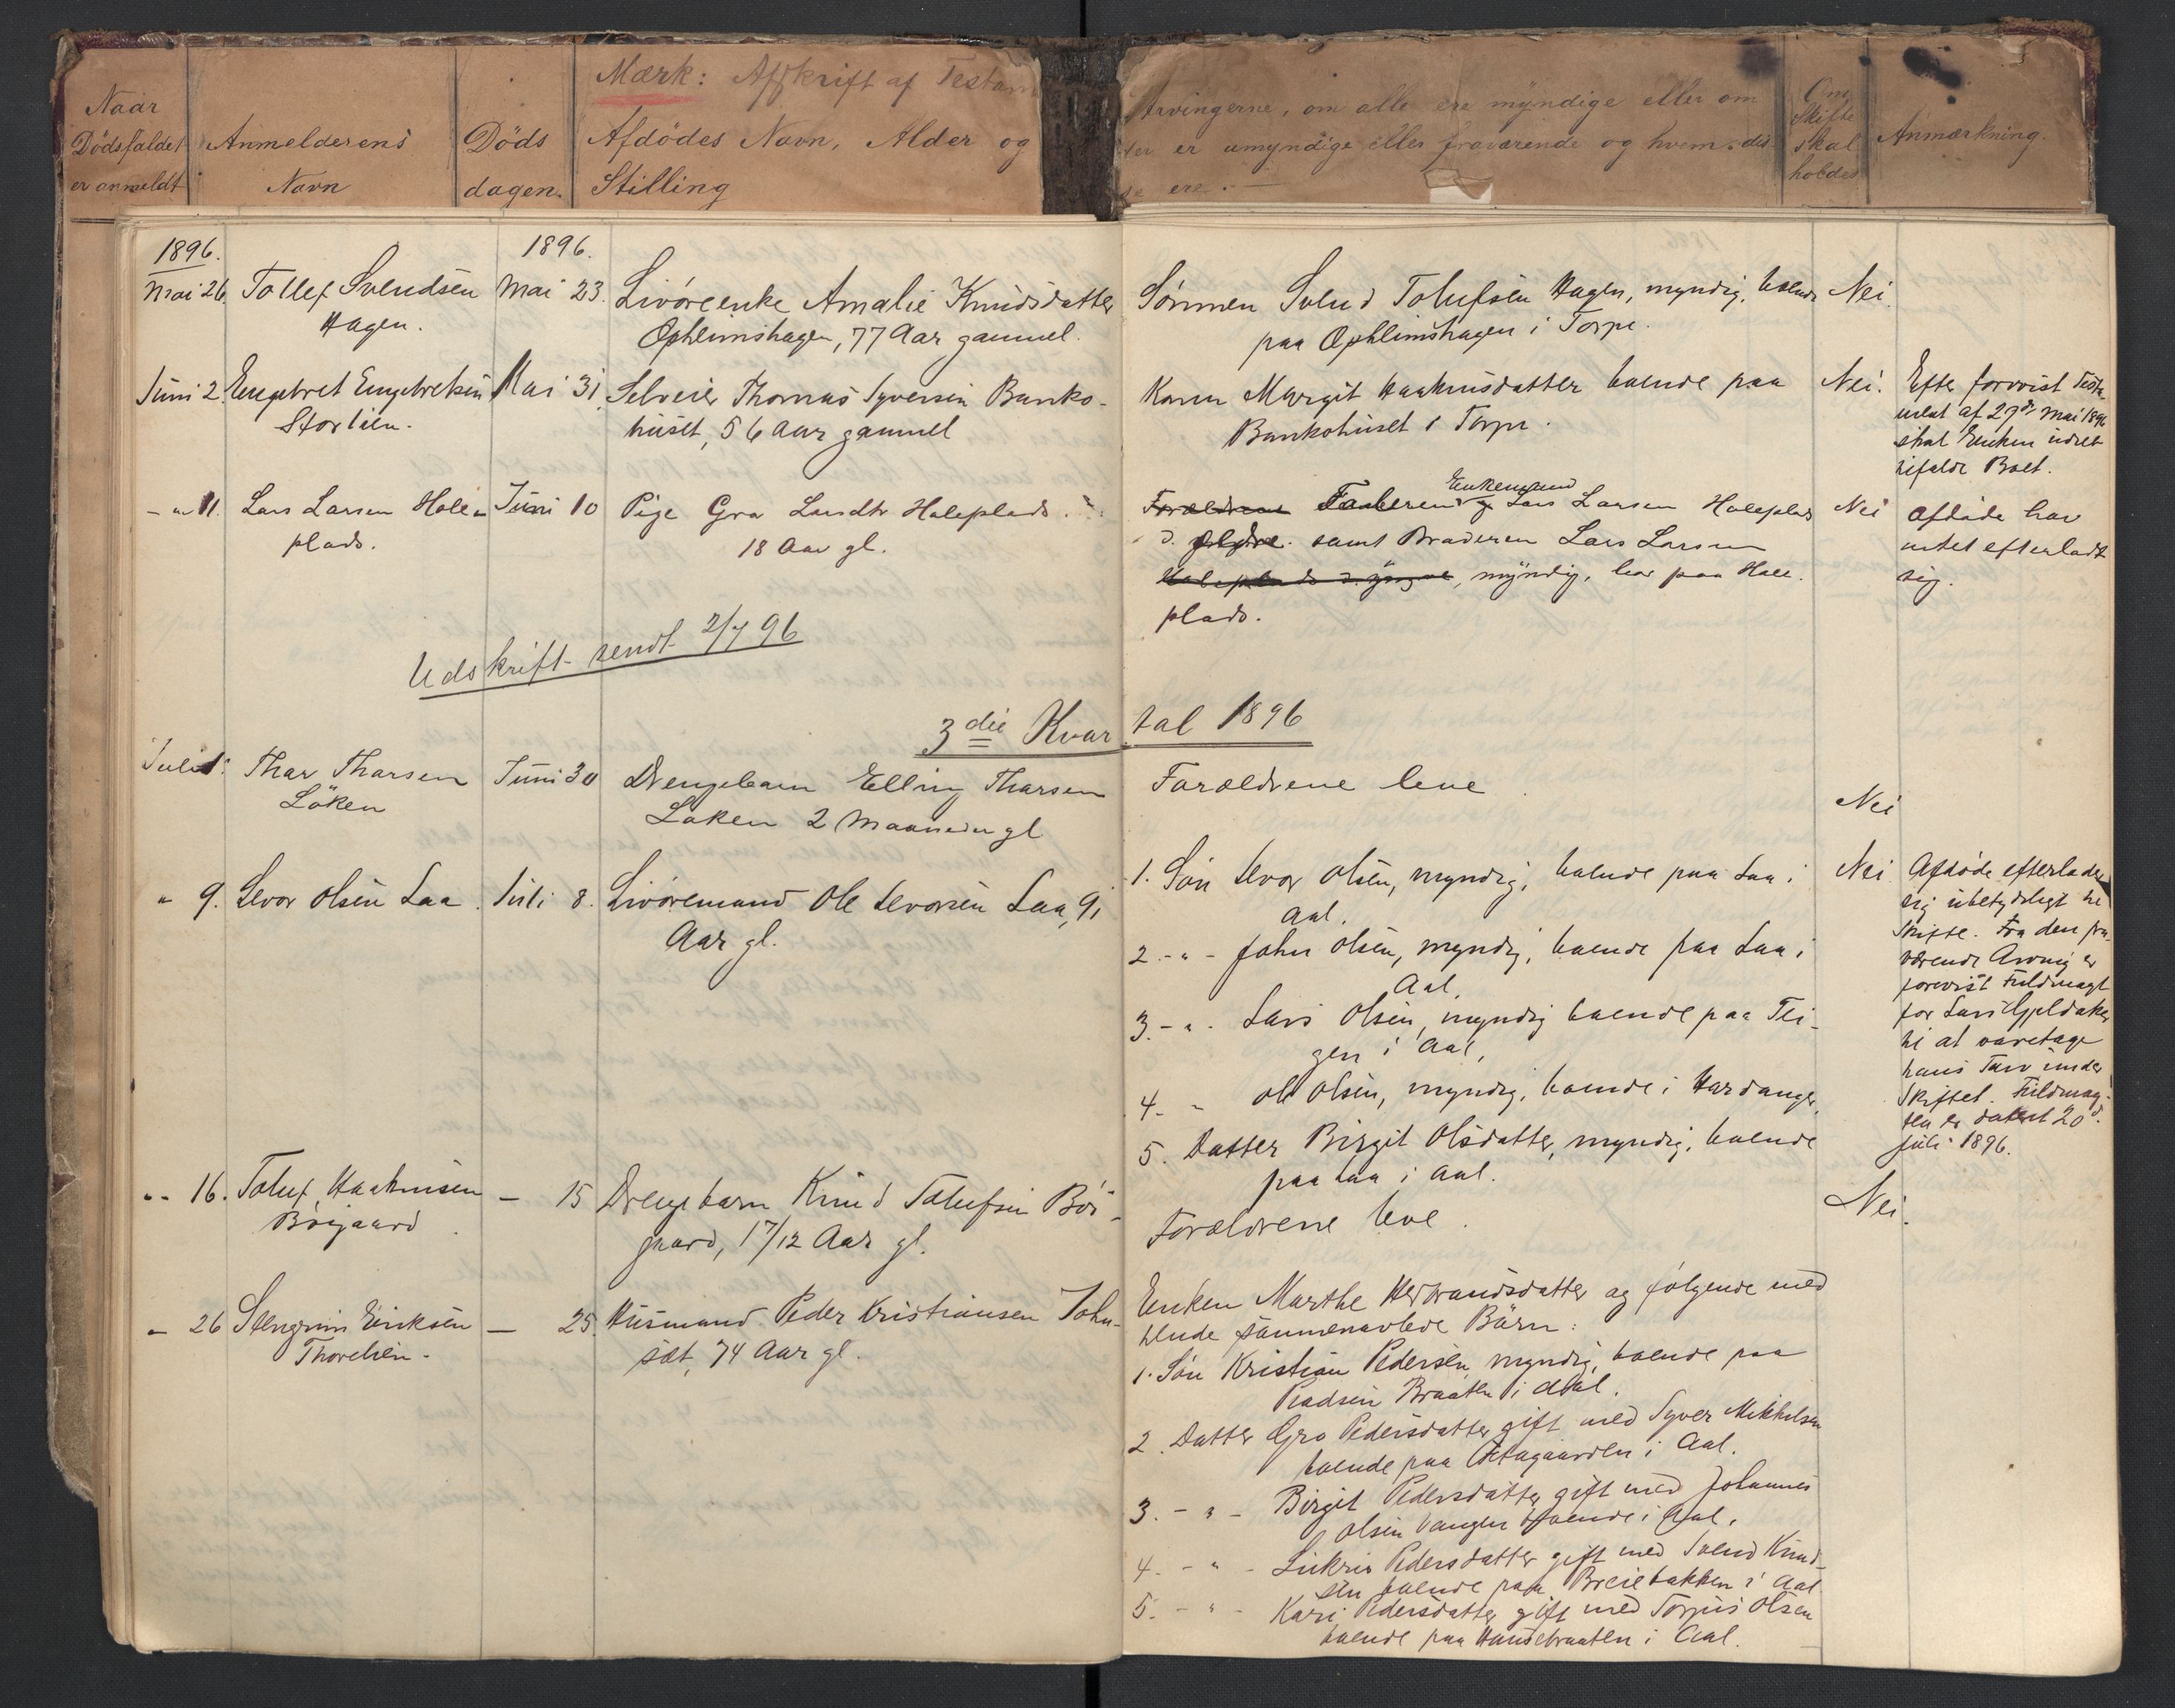 Mærk: Afskrift af Testam
Naar
Dödsfaldet
er anmeldt
Anmelderens
Navn
Döds
dagen.
Afdödes Navn, Alder og
Stilling
Arvingerne, om alle ere myndige eller om
ter er umyndige eller fraværende og hvem dis
se ere. —
Om
Skifte
skal
holdes
Anmærkning.
1896.
Mai 26.
Tollef Svendsen
Hagen.
1896.
Mai 23.
Livöreenke Amalie Knudsdatter
Opheimshagen, 77 Aar gammel.
Sönnen Svend Tolufsen Hagen, myndig, boende
paa Opheimshagen i Torpe.
Nei.
Juni 2.
Engebret Engebretsen
Storlien.
Mai 31.
Selveier Thomas Syversen Banko-
huset, 56 Aar gammel
Konen Margit Haakensdatter boende paa
Bankohuset i Torpe.
Nei.
Efter forevist Testa-
ment af 27de Mai 1896
skal Enken udelt
tilfalde Boet.
- " 11.
Lars Larsen Hole-
plads.
Juni 10
Pige Gro Larsdtr Holeplads.
18 Aar gl.
Enkemand
Forældrene Faderen Lars Larsen Holeplads
d. ældre. samt Broderen Lars Larsen
Holeplads d. yngre, myndig, bor paa Hole-
plads.
Nei
Afdöde har
intet efterladt
sig.
Udskrift sendt 2/7 96
3die Kvartal 1896
Juli 1.
Thor Thorsen
Löken
Juni 30
Drengebarn Elling Thorsen
Löken 2 Maaneder gl
Forældrene leve
Nei
" 9.
Levor Olsen Laa.
Juli 8.
Livöremand Ole Levorsen Laa, 91
Aar gl.
1. Sön Levor Olsen, myndig, boende paa Laa i
Aal.
2. - " - John Olsen, myndig, boende paa Laa i
Aal.
3. - " - Lars Olsen, myndig boende paa Tei-
gen i Aal,
4. - Ole Olsen, myndig, boende i Hardanger,
5. Datter Birgit Olsdatter, myndig, boende
paa Laa i Aal.
Nei
Afdöde efterlader
sig ubetydeligt til
Skifte. Fra den fra-
værende Arving er
forevist Fuldmagt
for Lars Gjeldaker
til at varetage
hans Tarv under
Skiftet. Fuldmag-
ten er dateret 20d.
Juli 1896.
" - 16.
Toluf Haakensen
Böigaard
— 15
Drengebarn Knud Tolufsen Böi-
gaard, 1 7/12 Aar gl.
Forældrene leve.
Nei.
- 26
Stengrim Eriksen
Thorelien.
— 25.
Husmand Peder Kristiansen John-
sæt, 74 Aar gl.
Enken Marthe Herbrandsdatter og fölgende med
hende sammenavlede Börn:
1. Sön Kristian Pedersen, myndig, boende paa
Braaten i Aal.
2. Datter Gro Pedersdatter gift med Syver Mikkelsen
boende paa i Aal.
3. - " - Birgit Pedersdatter gift med Johannes
Olsen Vangen boende i Aal.
4. - " - Pedersdatter gift med Svend Knud-
sen boende paa Breiebakken i Aal
5. - " - Kari Pedersdatter gift med Torjus Olsen
boende paa Handebraaten i Aal.